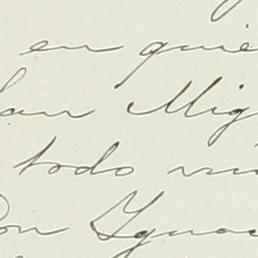 en quie
San Mig
todo
Don Ygnac